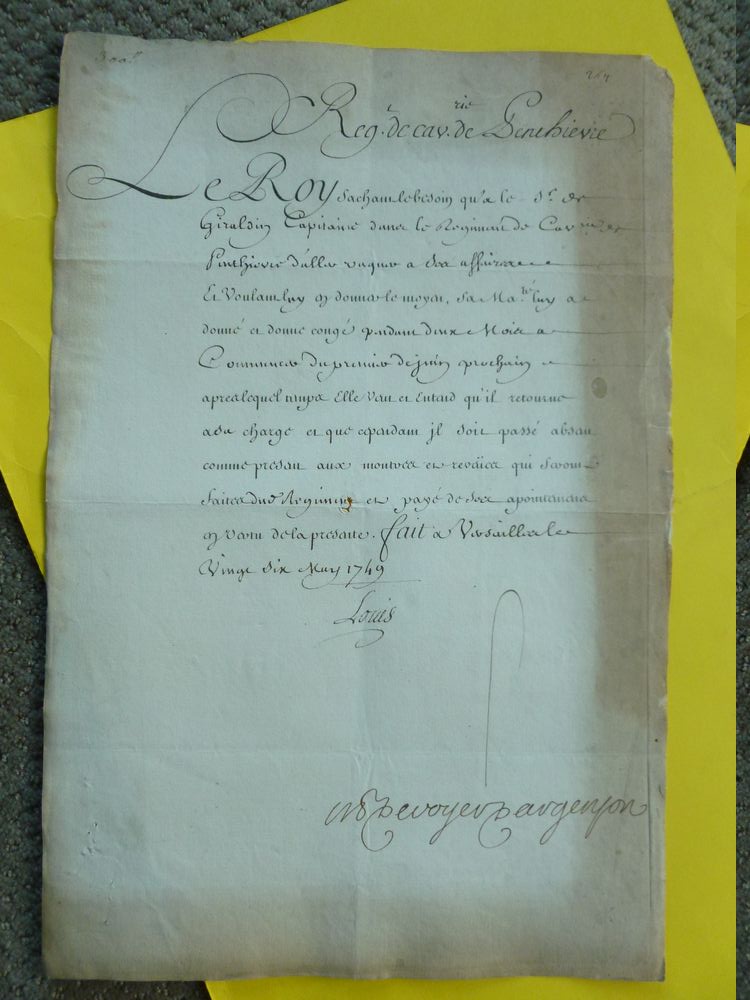 Reg.t de cav.rie de Penthievre
Le Roy Sachant le besoin qu'a le S.r de
Giraldin Capitaine dans le Regiment de Cav.rie de
Penthievre d'aller vaquer a Ses affaires
Et Voulant luy en donner le moyen, Sa Ma.té luy a
donné et donne congé pendant deux Mois a
Commencer du premier de juin prochain
apres lequel temps Elle Veut et Entend qu'il retourne
a sa charge et que cependant jl soit passé absent
comme present aux montres et reveües qui seront
faites dud. Regiment et payé de Ses apointements
en vertu de la presente. fait a Versailles le
Vingt Six May 1749
Louis
M P De voyer D'argenson